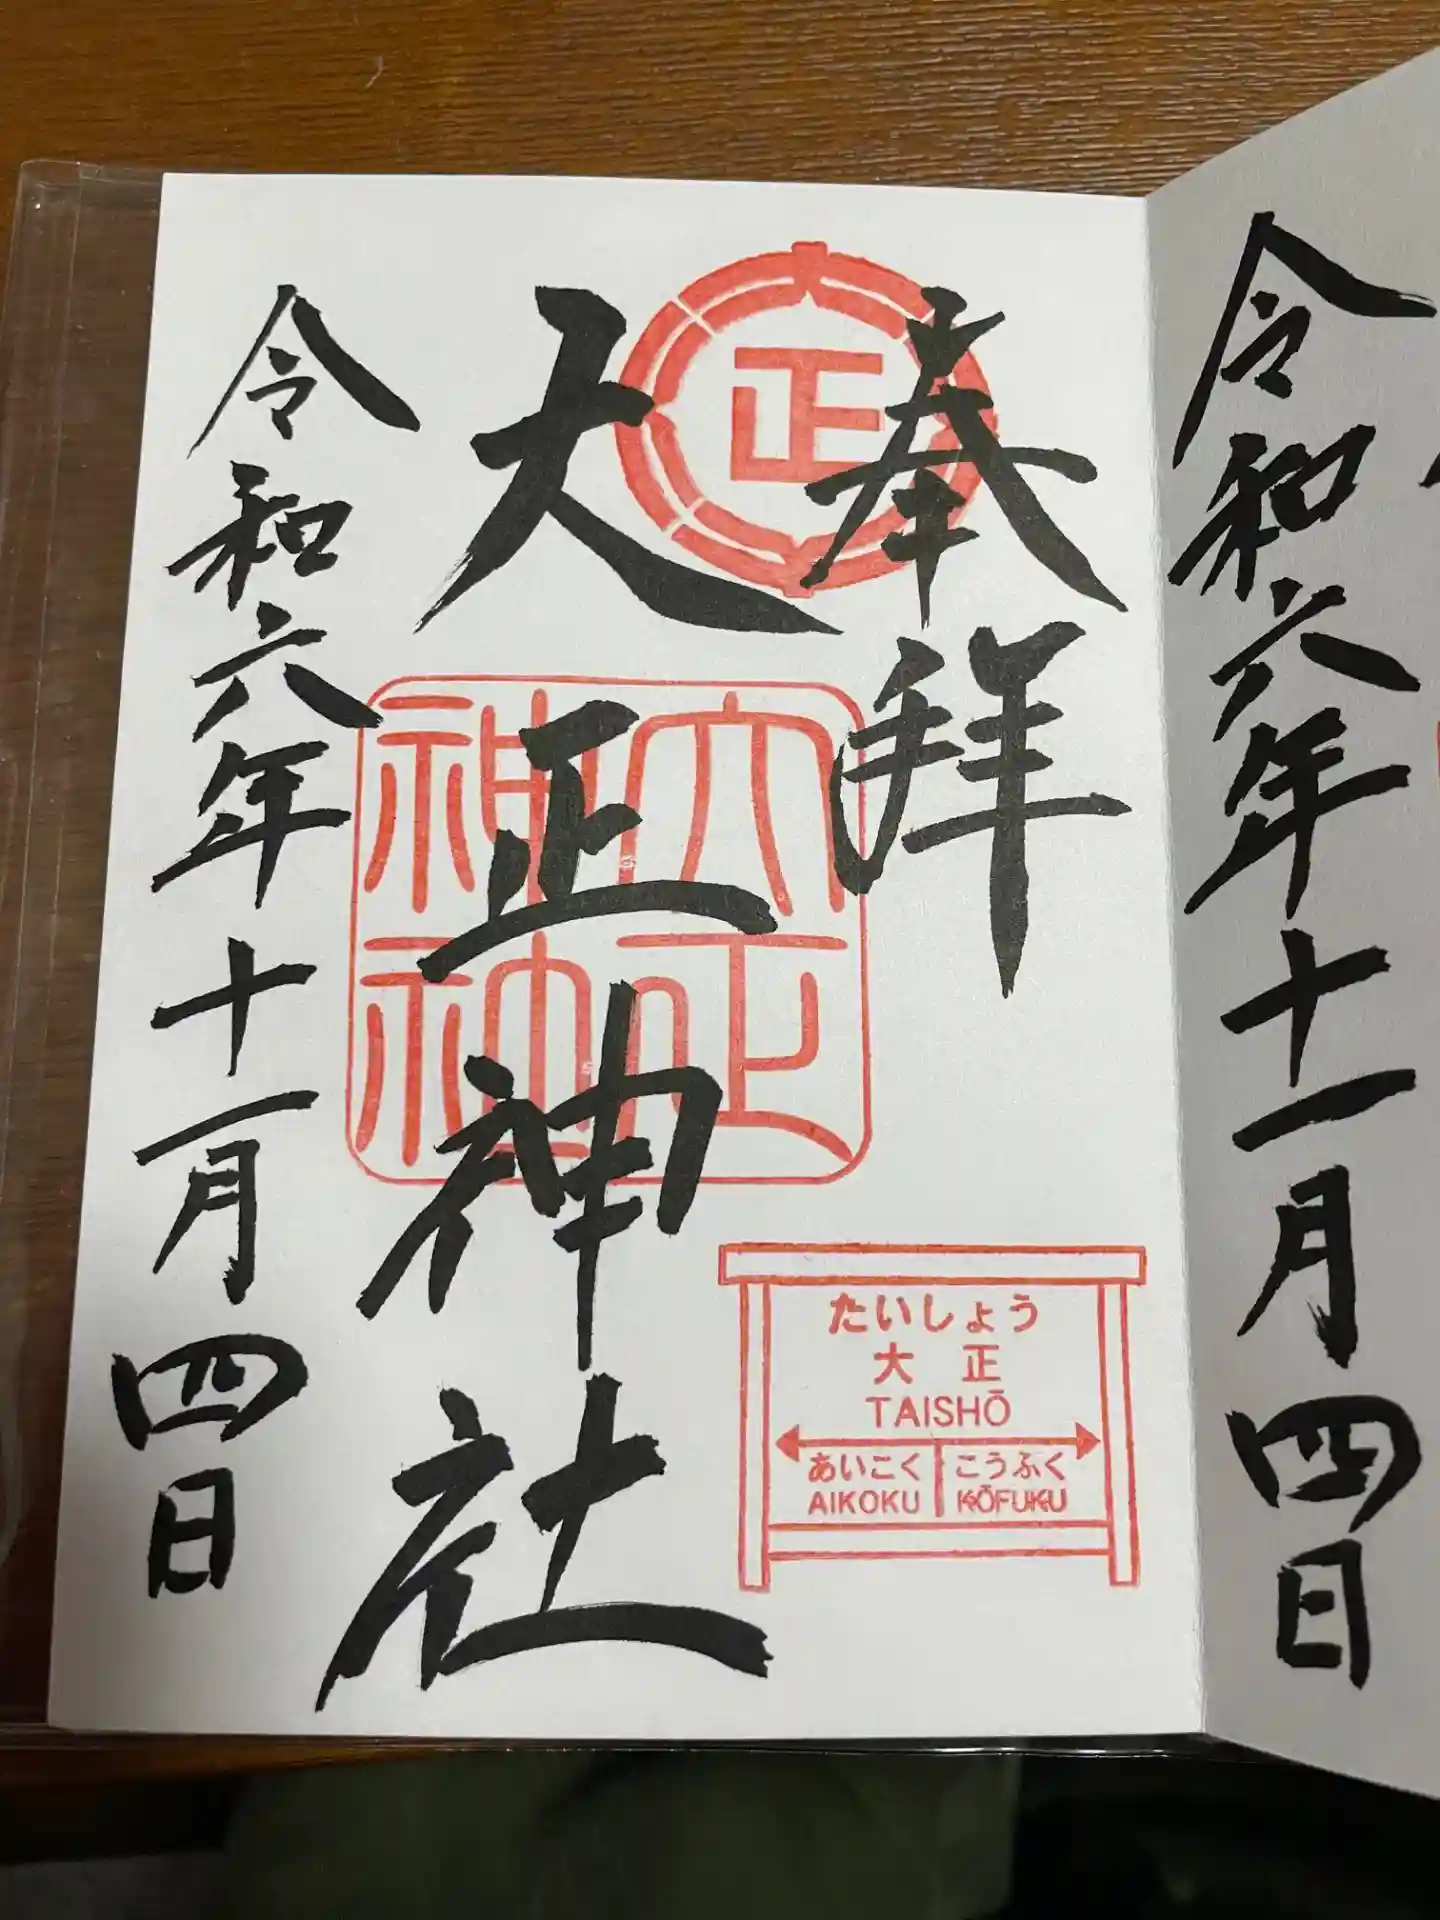 令和六年十一月四日
奉拝
正
大正神社
大正
神社
令和六年十一月四日
たいしょう
大正
TAISHŌ
あいこく こうふく
AIKOKU KŌFUKU